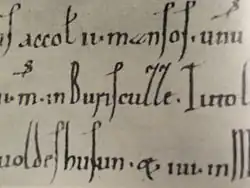 accol ii. mansos. unu
.m. in Burisculle. I uuol
uoldeshusun. & iiii. in